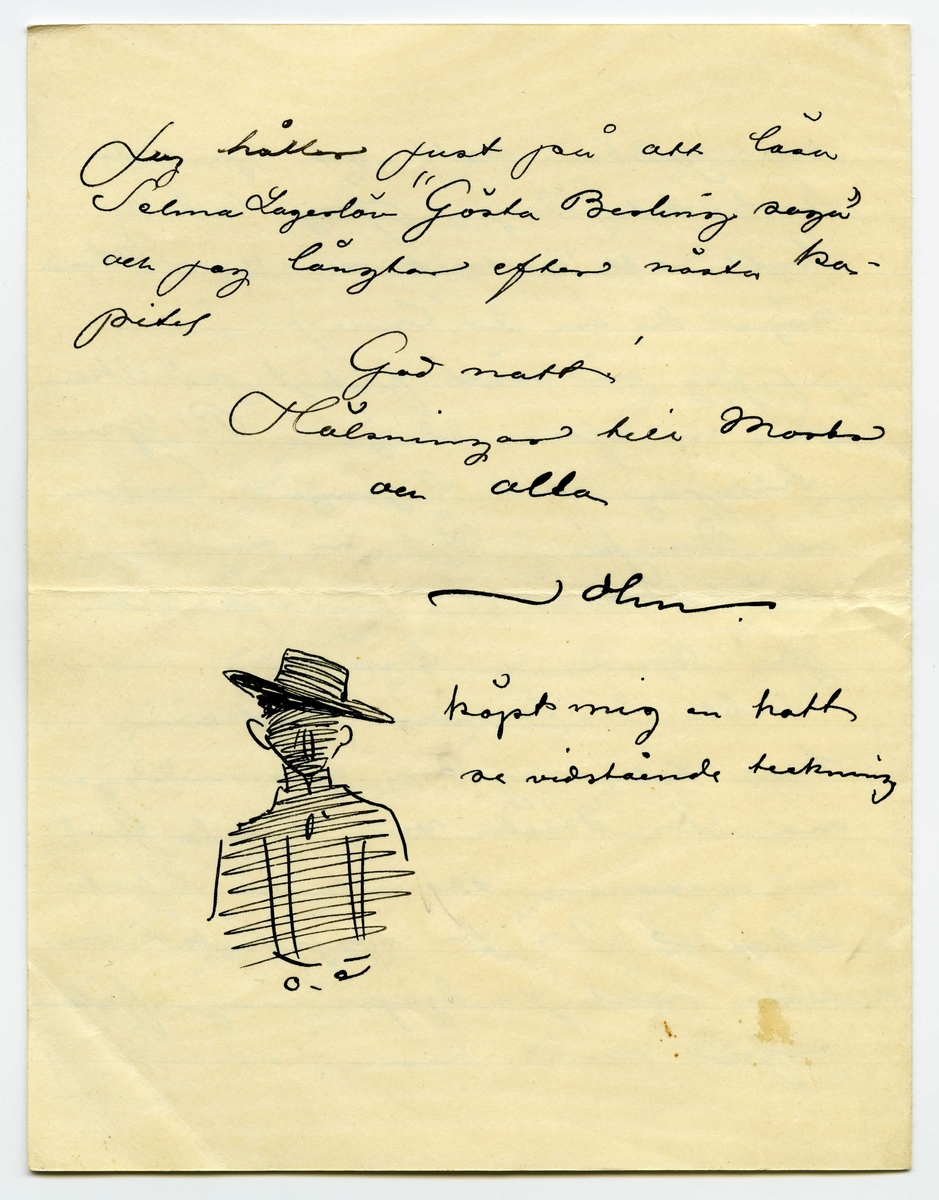 Jag håller just på att läsa
Selma Lagerlöv "Gösta Berling saga"
och jag längtar efter nästa ka-
pitel
God natt!
Hälsningar till
och alla
John.
köpt mig en hatt
se vidstående teckning